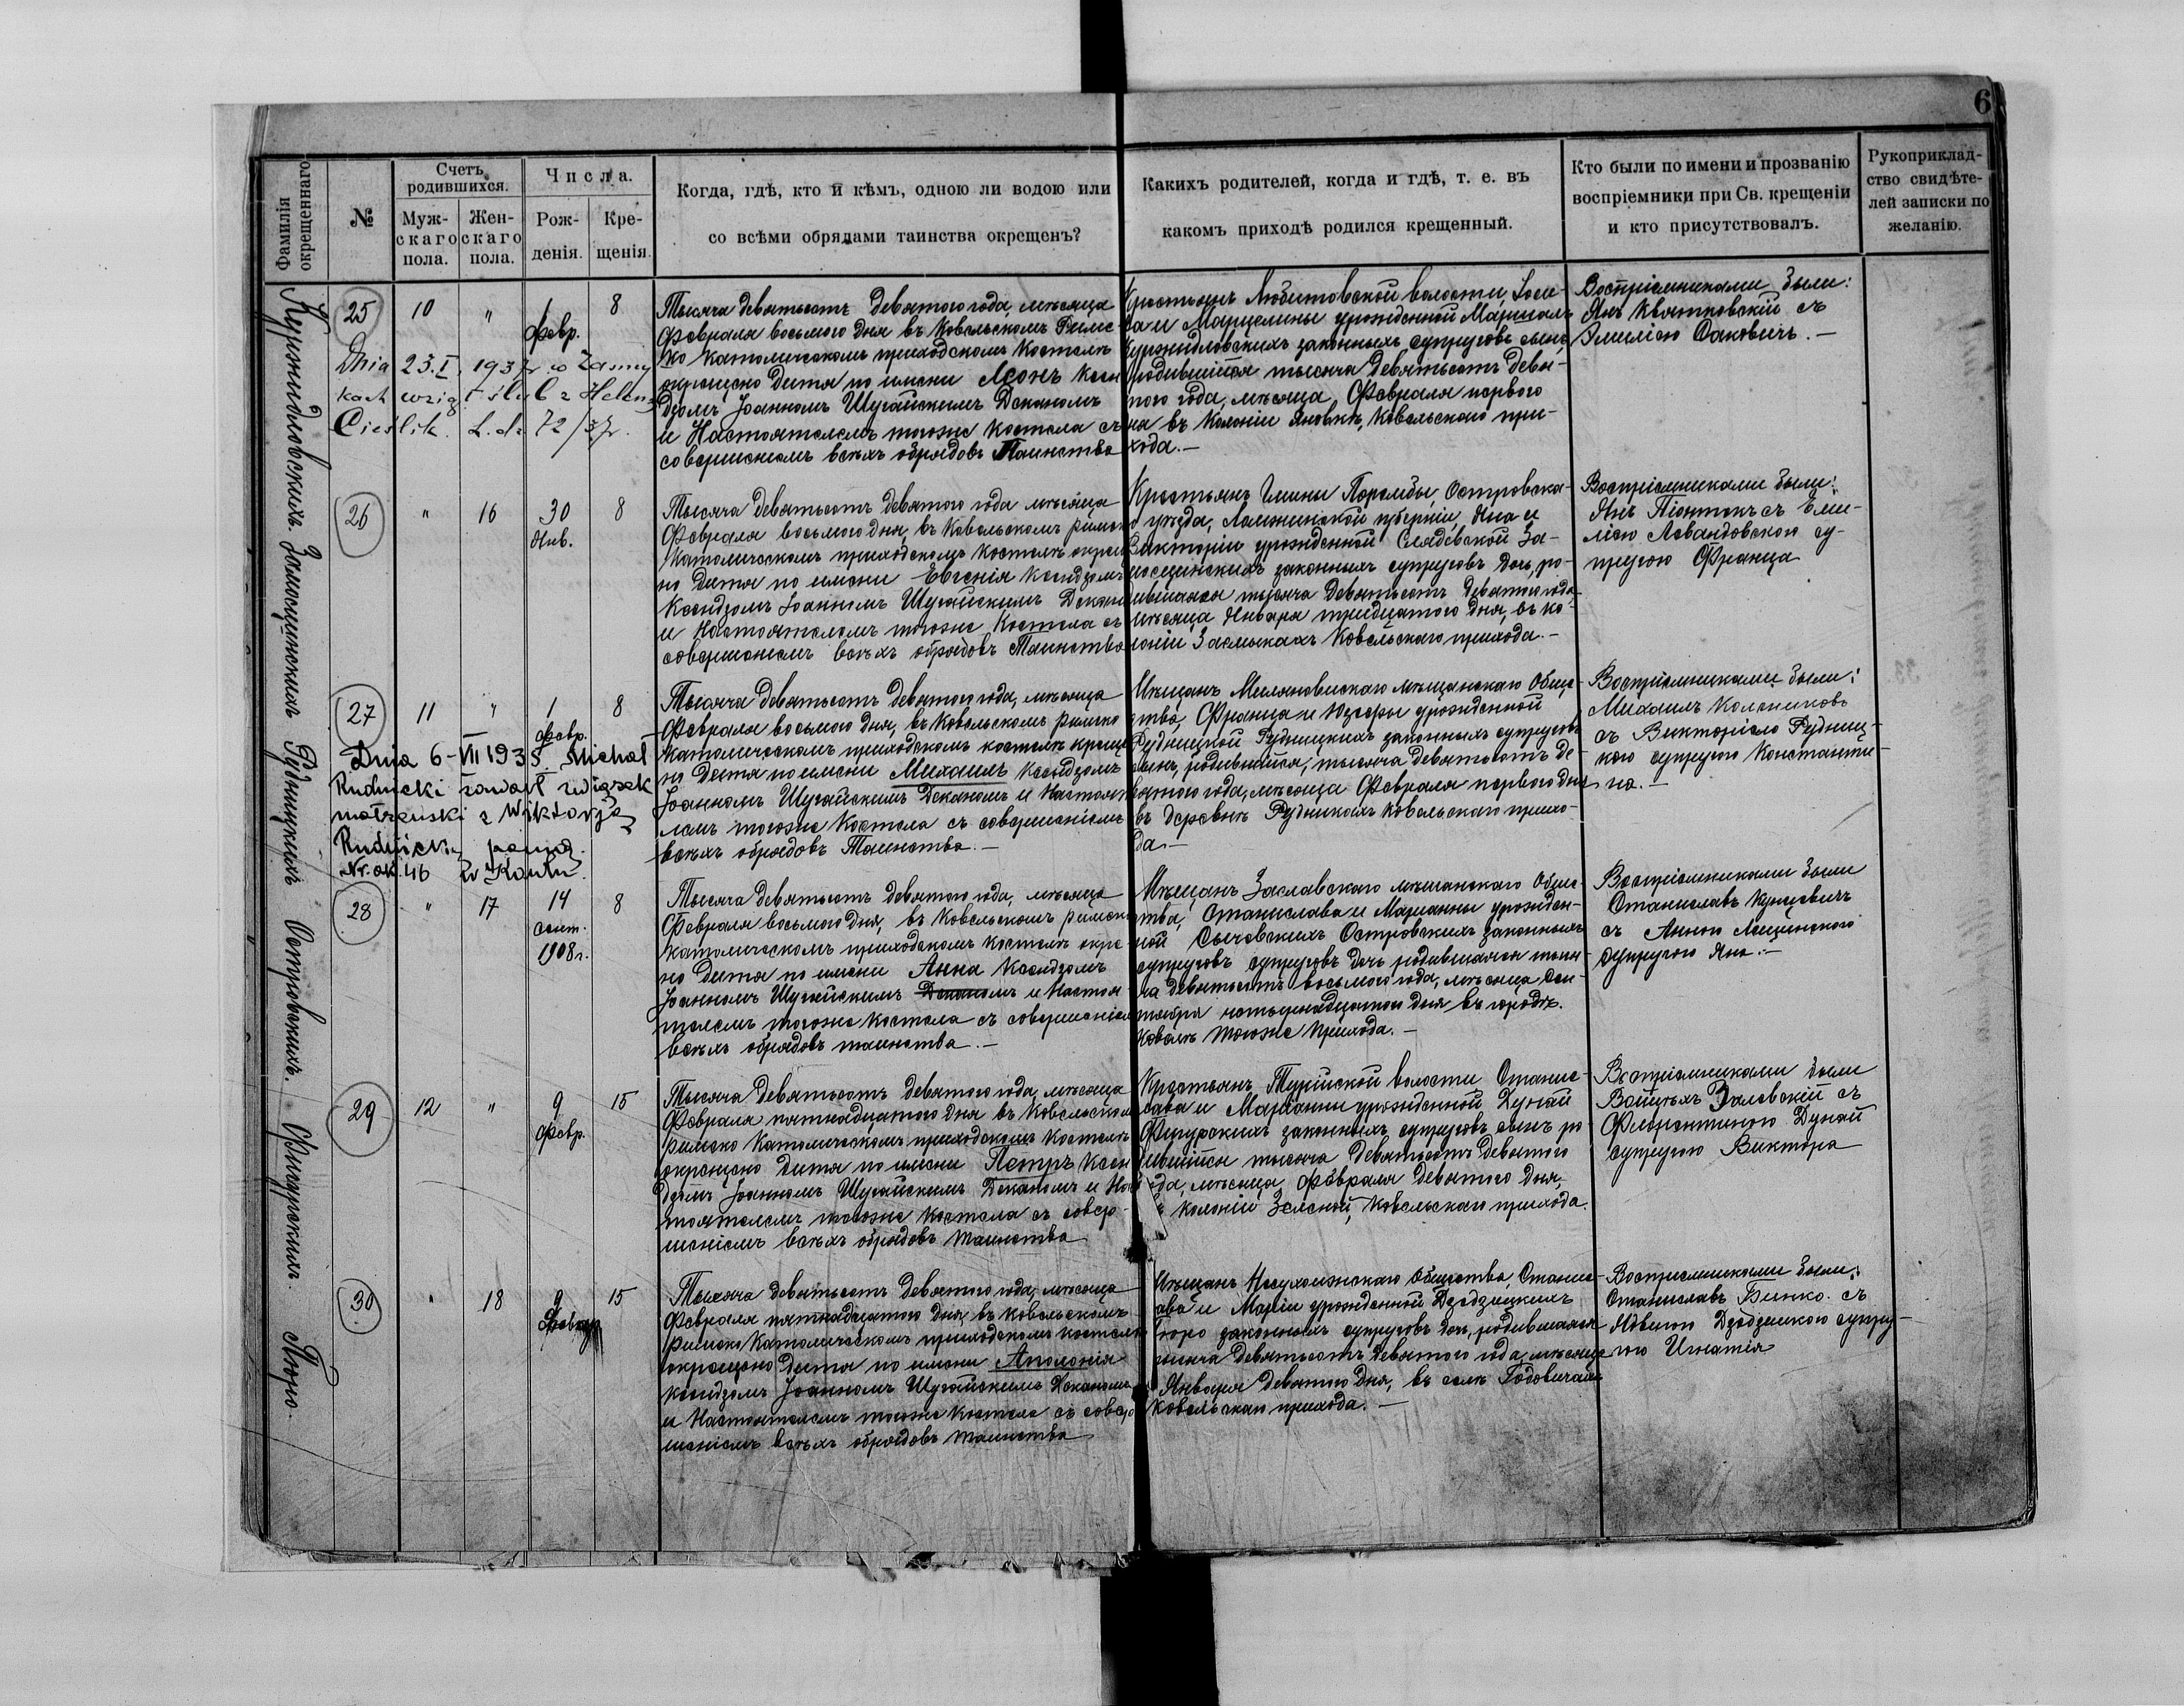 6
Фамилія окрещеннаго
№
Счетъ родившихся.
Мужскаго пола.
Женскаго пола.
Числа.
Рожденія.
Крещенія.
Когда, гдѣ, кто и кѣмъ, одною ли водою или
со всѣми обрядами таинства окрещенъ?
Какихъ родителей, когда и гдѣ, т. е. въ
какомъ приходѣ родился крещенный.
Кто были по имени и прозванію
воспріемники при Св. крещеніи
и кто присутствовалъ.
Рукоприклад-
ство свидѣте-
лей записки по
желанію.
25 10 " 1 Февр. 8
Dnia 23.I. 1937 r. w
wziął ślub z Heleną
Cieślik. L. dz 72/37r.
Тысяча девятьсотъ девятого года, мѣсяца
Февраля восьмого дня въ Ковельскомъ Римс
ко Католическомъ приходскомъ Костелѣ
окрещено дитя по имени Леонъ Ксен
дзомъ Іоанномъ Шугайскимъ Деканомъ
и Настоятелемъ тогоже Костела съ
совершеніемъ всѣхъ обрядовъ Таинства
Крестьянъ Любитовской волости,
и Марцелины урожденной
законныхъ супруговъ сынъ,
родившійся тысяча девятьсотъ девя-
того года, мѣсяца Февраля перваго
дня въ Колоніи Яновкѣ, Ковельскаго при-
хода.—
Воспріемниками были:
Янъ Квятковскій съ
Эмиліею Саковичъ.—
26 " 16 30 Янв. 8
Тысяча девятьсотъ девятого года мѣсяца
Февраля восьмого дня, въ Ковельскомъ римско
Католическомъ приходскомъ Костелѣ окреще
но дитя по имени Евгенія Ксендзомъ
Ксендзомъ Іоанномъ Шугайскимъ Декан
и Настоятелемъ тогоже Костела съ
совершеніемъ всѣхъ обрядовъ Таинства
Крестьянъ Гмины Порембы, Островска-
го уѣзда, Ломжинской губерніи, Яна и
Викторіи урожденной За-
мосцинскихъ законныхъ супруговъ дочь, ро-
дившаяся тысяча девятьсотъ девятого года
мѣсяца Января тридцатаго дня, въ ко-
лоніи Засмыкахъ Ковельскаго прихода.—
Воспріемниками были:
Янъ Піонтекъ съ Еми-
ліею Левандовскою су-
пругою Франца
27 11 " 1 Февр. 8
Dnia 6-VII 1935. Michał
Rudnicki zawarł związek
małżeński z Wiktorją
Rudnicką panną.
Nr. ak. 46
Тысяча девятьсотъ девятого года, мѣсяца
Февраля восьмого дня, въ Ковельскомъ римско
Католическомъ приходскомъ костелѣ креще
но дитя по имени Михаилъ Ксендзомъ
Іоанномъ Шугайскимъ Деканомъ и Настояте
лемъ тогоже Костела съ совершеніемъ
всѣхъ обрядовъ Таинства.—
Мѣщанъ Миляновискаго мѣщанскаго Обще-
ства, Франца и Юзефы урожденной
Рудницкой Рудницкихъ законныхъ супруговъ
сынъ, родившійся, тысяча девятьсотъ де-
вятого года, мѣсяца Февраля перваго дня
въ деревнѣ Рудникахъ Ковельскаго прихо-
да.—
Воспріемниками были:
Михаилъ Колесниковъ
съ Викторіею Рудниц-
кою супругою Константи-
на.—
28 " 17 14 сент. 1908 г. 8
Тысяча девятьсотъ девятого года, мѣсяца
Февраля восьмого дня, въ Ковельскомъ римско
католическомъ приходскомъ Костелѣ окре
но дитя по имени Анна Ксендзомъ
Іоанномъ Шугайскимъ Деканомъ и Настоя
телемъ тогоже Костела съ совершеніем
всѣхъ обрядовъ таинства.—
Мѣщанъ Заславскаго мѣщанскаго Обще-
ства, Станислава и Марianны урожден-
ной Сычевскихъ Островскихъ законныхъ
супруговъ супруговъ дочь родившаяся тыся-
ча девятьсотъ восьмого года, мѣсяца Сен-
тября четырнадцатого дня въ городѣ
Ковелѣ тогоже прихода.—
Воспріемниками были
Станиславъ
съ Анною Лещинскою
супругою Яна.—
29 12 " 9 Февр. 15
Тысяча девятьсотъ девятого года, мѣсяца
Февраля пятнадцатого дня въ Ковельском
римско Католическомъ приходскомъ Костелѣ
окрещено дитя по имени Петръ Ксен
дзомъ Іоанномъ Шугайскимъ Деканомъ и Нас
тоятелемъ тогоже Костела съ совер-
шеніемъ всѣхъ обрядовъ таинства
Крестьянъ Турійской волости Станис-
лава и Маріанны урожденной Дунай
Фигурскихъ законныхъ супруговъ сынъ ро
дившійся тысяча девятьсотъ девятого
года, мѣсяца Февраля девятого дня,
въ колоніи Зеленой, Ковельскаго прихода.
Воспріемниками были
Войцехъ Залевскій съ
Флорентиною Дунай
супругою Виктора
30 " 18 9 15
Тысяча девятьсотъ девятого года, мѣсяца
Февраля пятнадцатого дня въ Ковельскомъ
Римско Католическомъ приходскомъ костелѣ
окрещено дитя по имени Аполонія
ксендзомъ Іоанномъ Шугайскимъ Деканомъ
и Настоятелемъ тогоже Костела съ совер
шеніемъ всѣхъ обрядовъ таинства
Мѣщанъ Несухоижскаго Общества, Станис-
лава и Маріи урожденной Дзедзицкихъ
Гюро законныхъ супруговъ дочь, родившаяся
тысяча девятьсотъ девятого года, мѣсяца
Января девятого дня, въ селѣ Годовичахъ
Ковельскаго прихода.—
Воспріемниками были:
Станиславъ Бинко съ
Ядвигою Дзедзицкою супру-
гою Игнатія
Замосцинскихъ Рудницкихъ Островскихъ. Фигурскихъ Гюро.